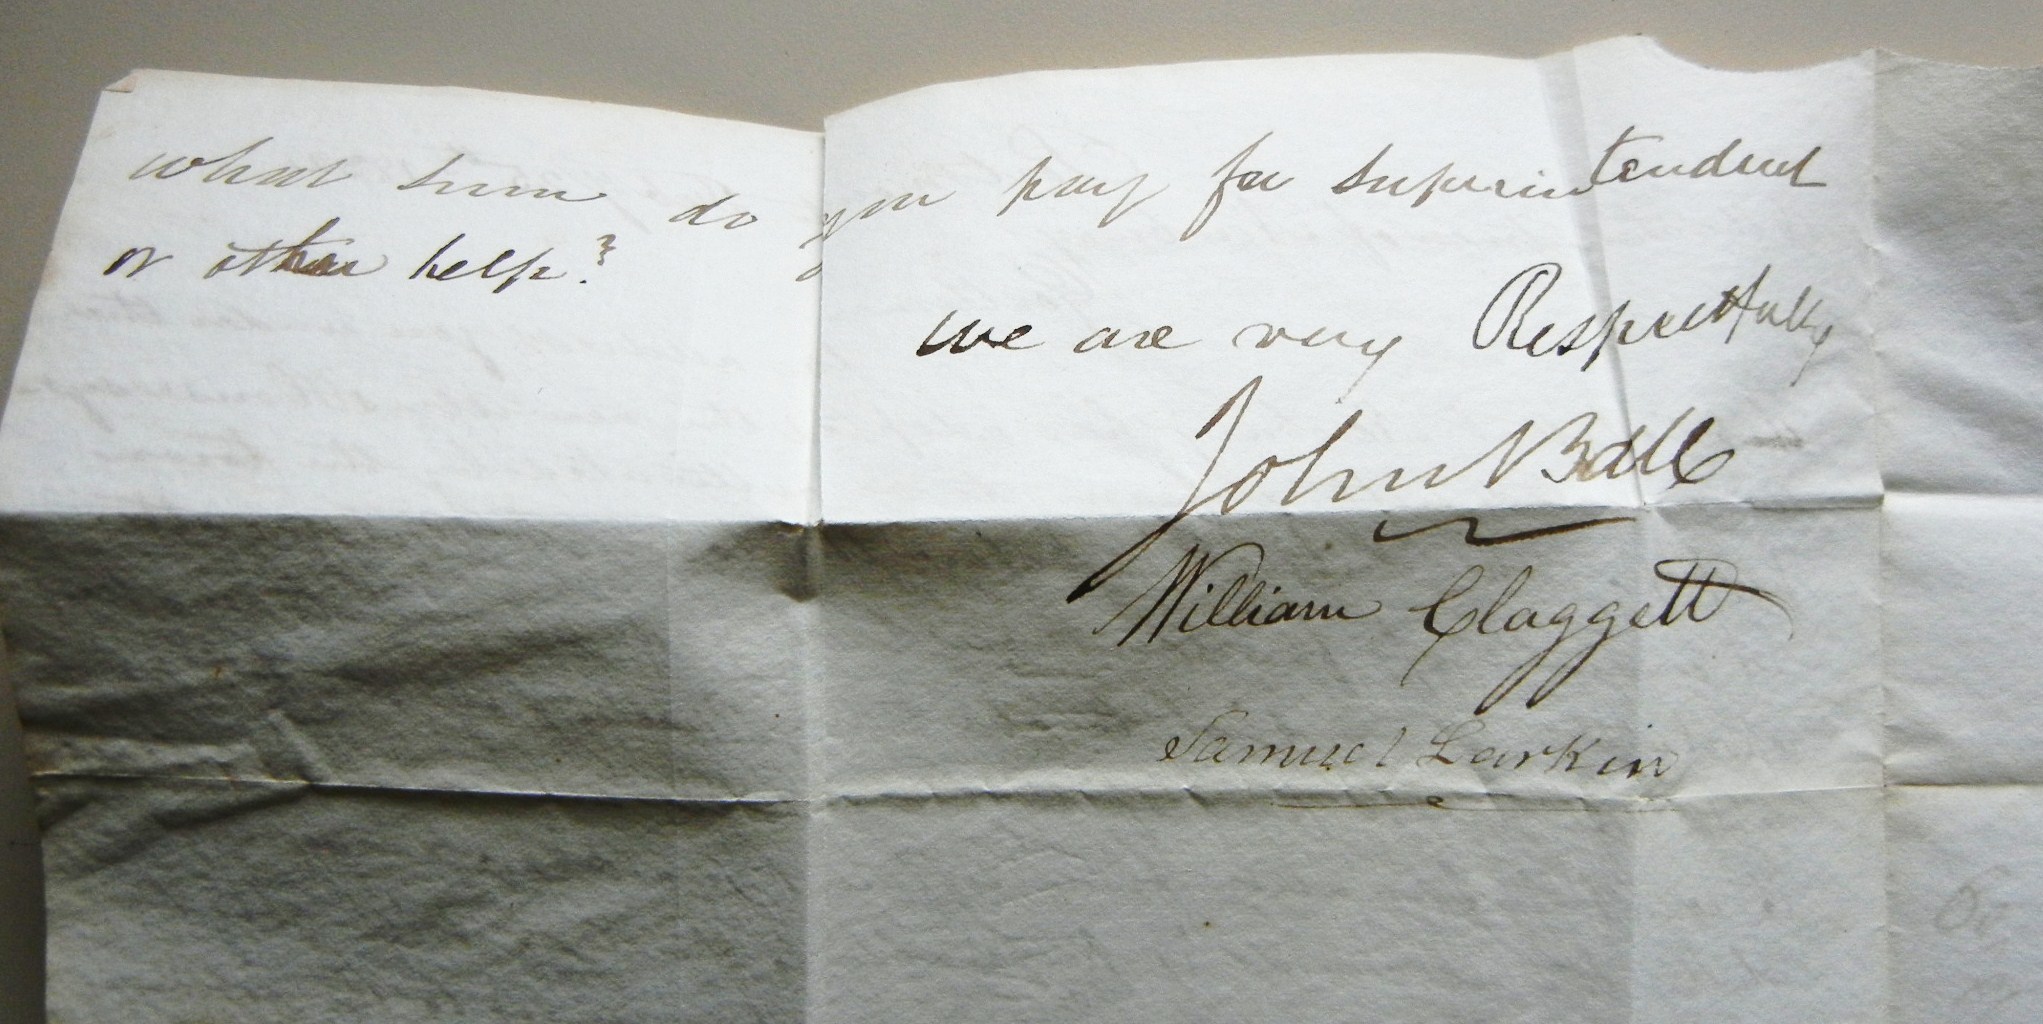 what sum do you pay for superintendent
or other help?
we are very Respectfully
John Ball
William Claggett
Samuel Larkin